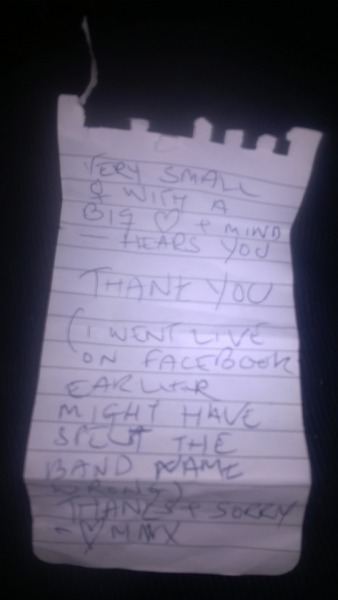 VERY SMALL
♀ WITH A
BIG ♡ + MIND
— HEARS YOU
THANK YOU
(I WENT LIVE
ON FACEBOOK
EARLIER
MIGHT HAVE
SPELT THE
BAND NAME
WRONG)
THANKS + SORRY
- ♡